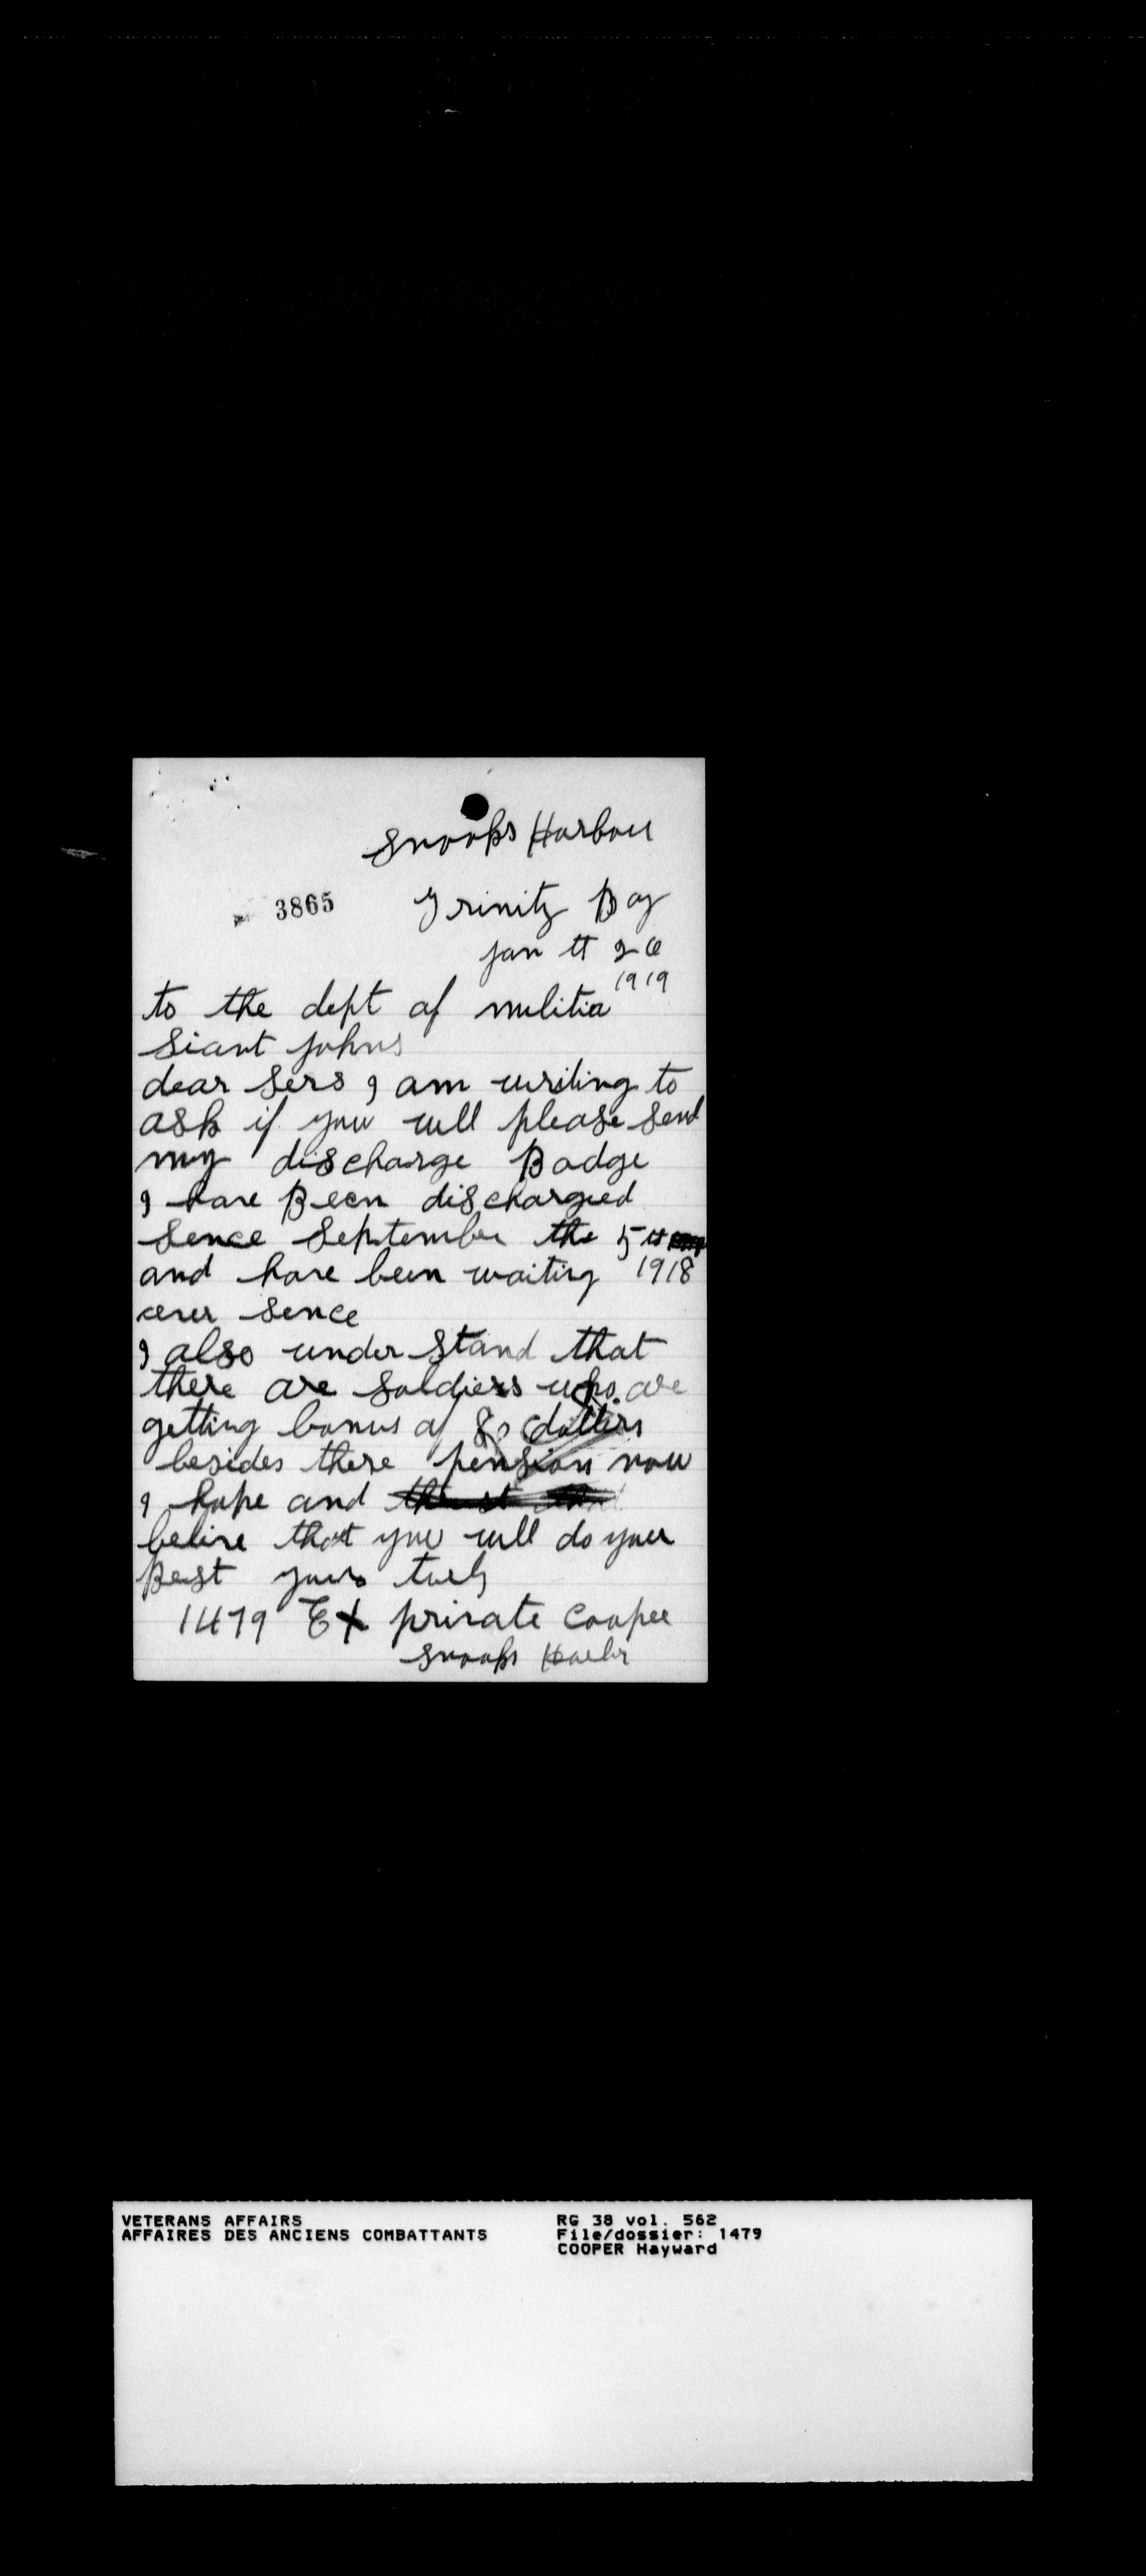 Snooks Harbou
3865 Trinity Bay
jan tt 26
1919
to the dept of militia
Siant johns
dear Sers I am writing to
ask if you will please send
my discharge Badge
I have Been dischargied
Sence September the 5 tt
and have been waiting 1918
ever Sence
I also under Stand that
there are Soldiers who are
getting bonus of 80 dollars
besides there pension now
I hope and
belive that you will do your
Best yours
1479 Ex private Cooper
Snooks
VETERANS AFFAIRS RG 38 vol. 562
AFFAIRES DES ANCIENS COMBATTANTS File/dossier: 1479
COOPER Hayward